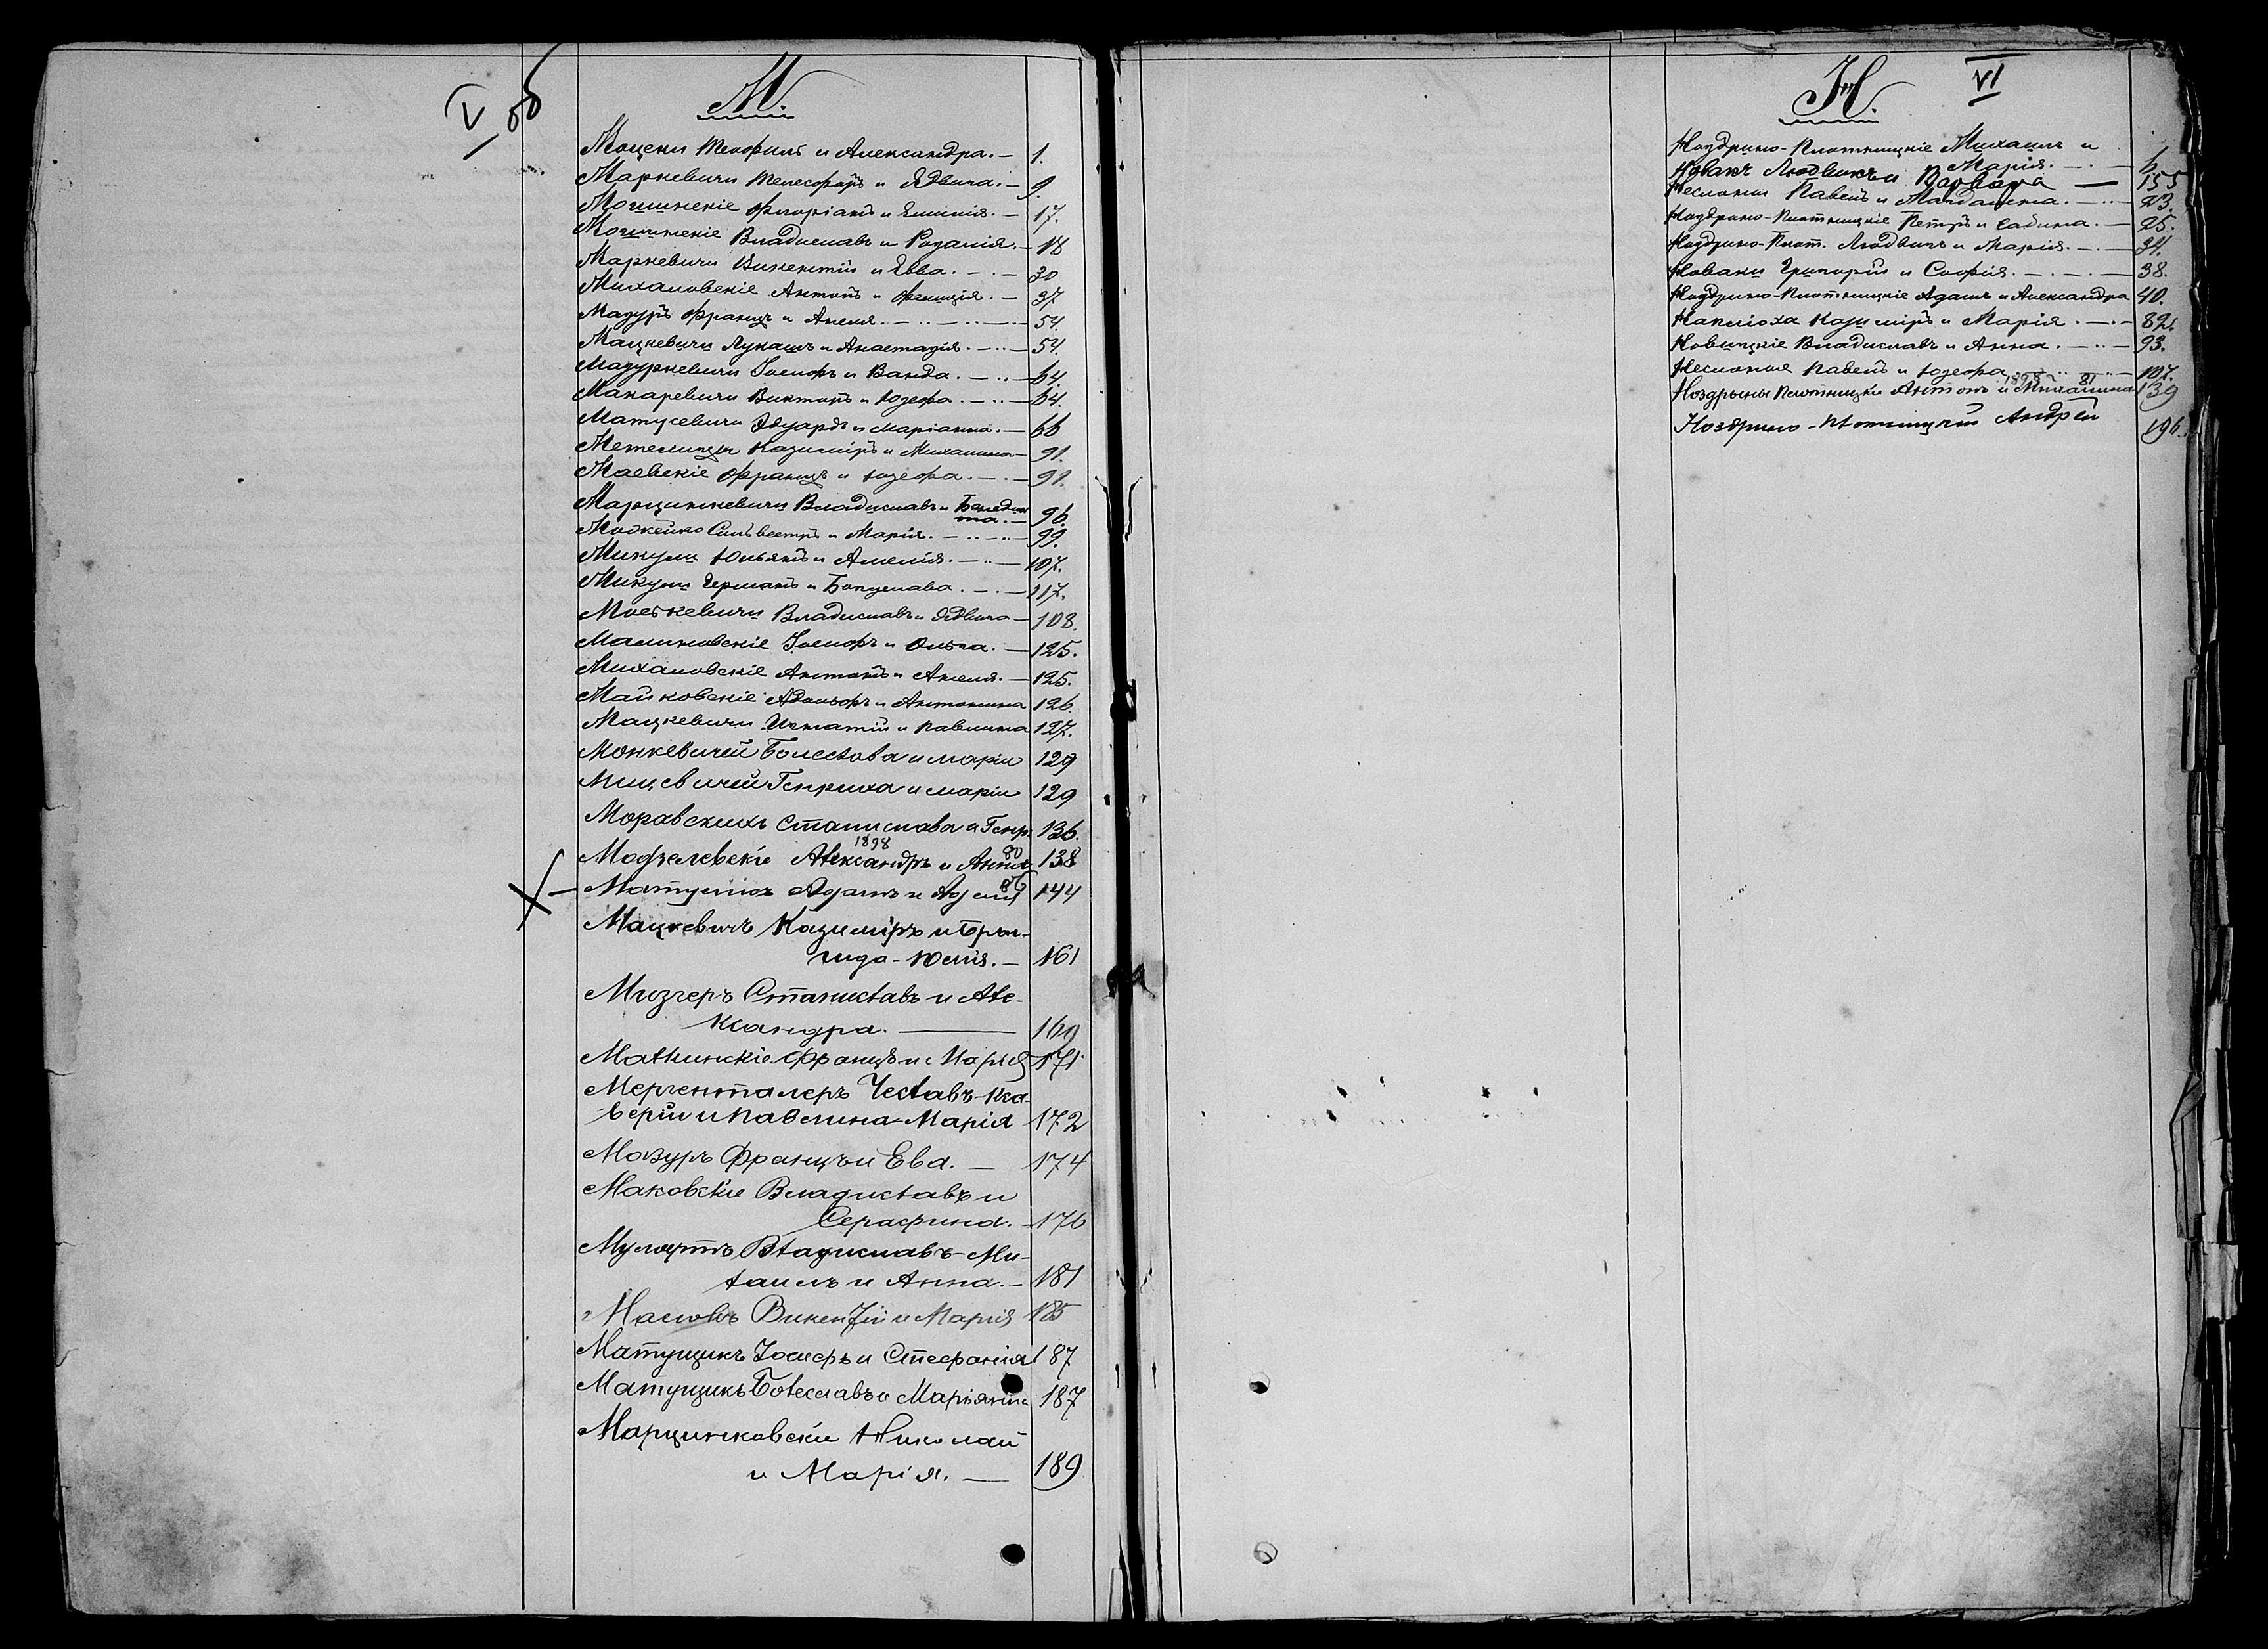 V об
М.
Моцени Теофилъ и Александра. — 1.
Маркевичи Телесфоръ и Ядвига. — 9.
Могильнскіе Флоріанъ и Емилія. — 17.
Владиславъ и Розалія. — 18
Маркевичи Викентій и Евва. — 30
Михаловскіе Антонъ и Фелиція. — 37
Мазуръ Францъ и Анеля. — 54.
Мацкевичи Лукашъ и Анастазія. — 54.
Мазуркевичи Іосифъ и Ванда. — 64.
Макаревичи Викторъ и Юзефа. — 64.
Матусевичи Эдуардъ и Маріанна. — 66
Метелицы Казиміръ и Михалина — 91.
Маевскіе Францъ и Юзефа. — 91.
Марцинкевичи Владиславъ и Бенедик
та. — 96.
Можейко Сильвестръ и Марія. — 99.
Микули Юльянъ и Амелія. — 107.
Микули Германъ и Богуслава. — 117.
Моськевичи Владиславъ и Ядвига — 108.
Малиновскіе Іосифъ и Ольга. — 125.
Михаловскіе Антонъ и Анеля. — 125.
Майковскіе Адольфъ и Антонина 126.
Мацкевичи Игнатій и Павлина 127.
Монкевичей Болеслова и Маріи 129
Мицевичей Генриха и Маріи 129
Моравскихъ Станислава и Генр. 136.
1898 80
Модзелевскіе Александръ и Анна 138
86
Адамъ и 144
Мацкевичъ Казиміръ и Бры-
гида-Юлія. — 161
Мизгеръ Станиславъ и Але-
ксандра. — 169
Малинскіе Францъ и Марья 171
Мергенталеръ Чеславъ-Кса-
верій и Павлина-Марія 172
Мазуръ Францъ и Ева. — 174
Маковскіе Владиславъ и
Серафина. — 176
Мулартъ Владиславъ-Ми-
хаилъ и Анна. — 181
Викентій и Марія 185
Матущикъ Іосифъ и Стефанія 187
Матущикъ Болеславъ и Маріянна 187
Марцинковскіе Николай
и Марія. — 189
Н. VI
Ноздрино-Плотницкіе Михаилъ и
Марія. — 6.
Новакъ Людвикъ и Варвара — 155
Павелъ и Магдалена. — 23.
Ноздрино-Плотницкіе Петръ и Сабина. — 25.
Ноздрино-Плот. Людвигъ и Марія. — 31.
Новаки Григорій и Софія. — 38.
Ноздрино-Плотницкіе Адамъ и Александра 40.
Наплоха Казиміръ и Марія. — 82.
Новицкіе Владиславъ и Анна. — 93.
Павелъ и Юзефа — 107.
1898 81
Ноздрины Плотницки Антонъ и Михалина 139
Ноздрино-Плотницкій Андрей 196.